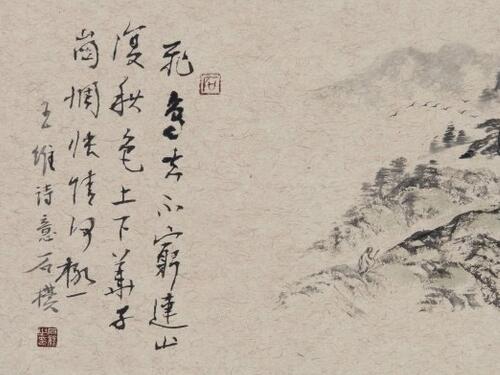 飛鳥去不窮連山
復秋色上下華子
崗惆悵情何極
王維詩意石樸